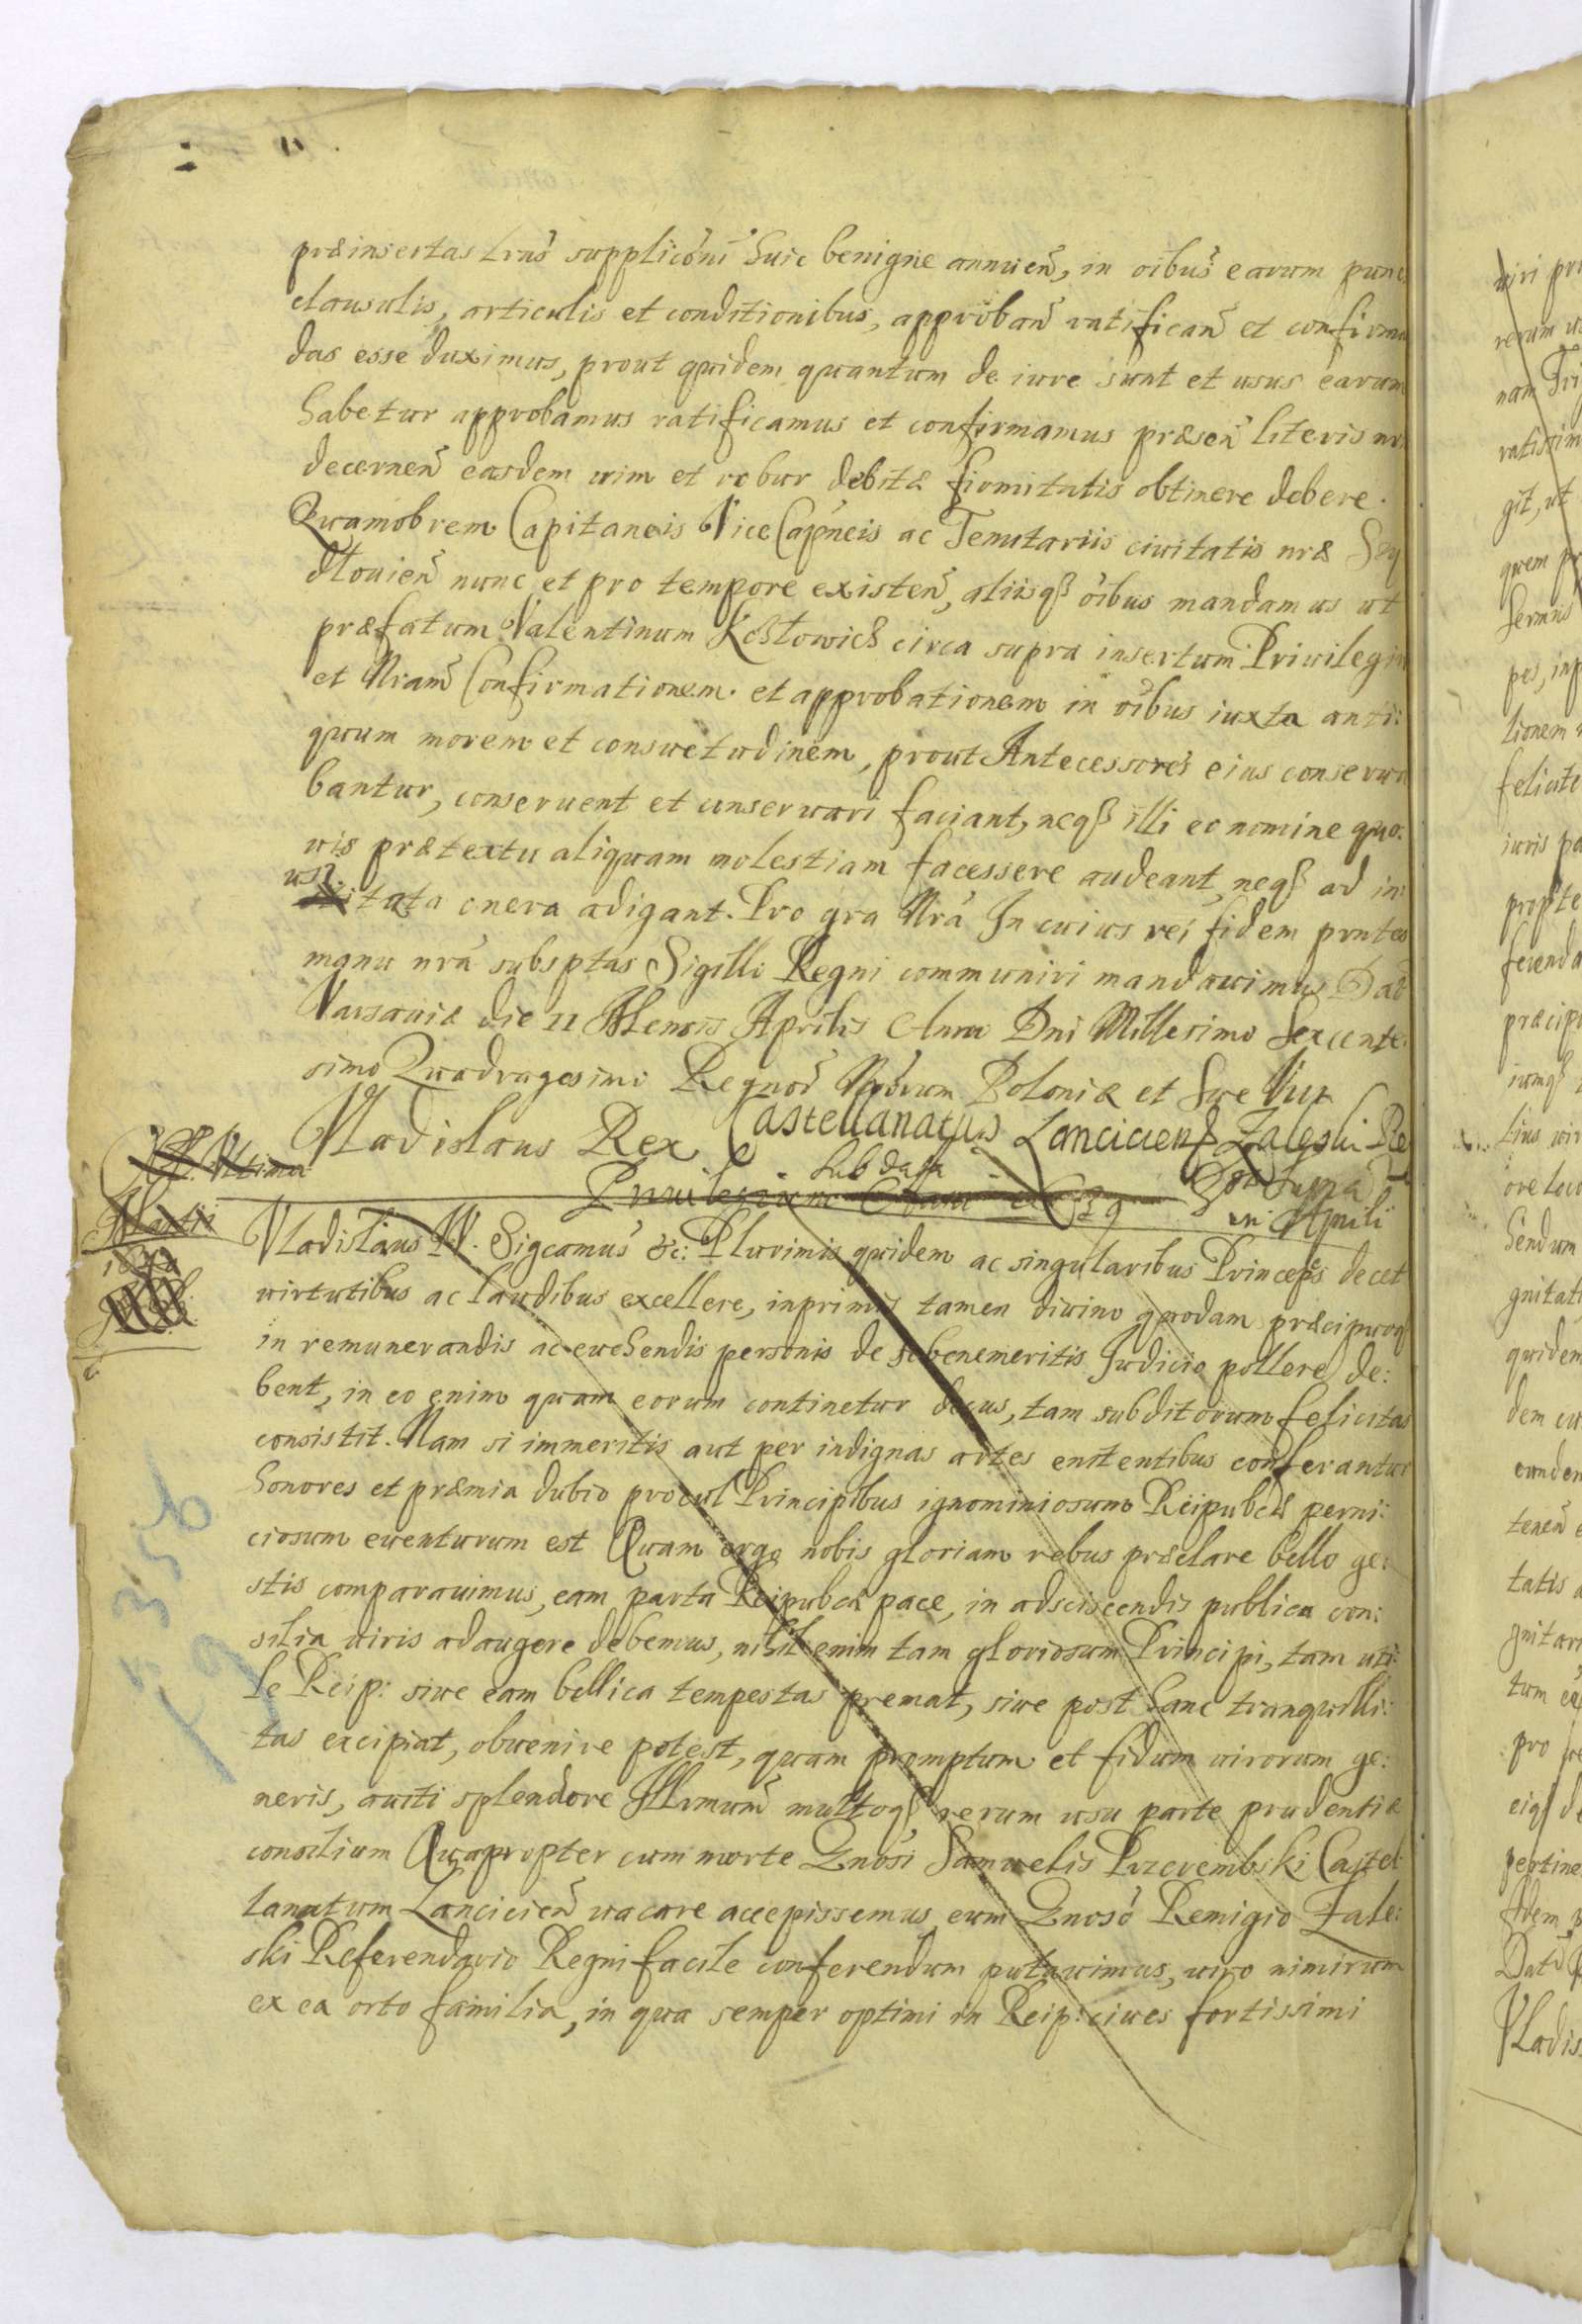 præinsertas Lrãs supplicõni huic benigne annuen̄, in oībus earum punc
clausulis, articulis et conditionibus, approban̄ ratifican̄ et confirma
das esse duximus, prout quidem quantum de iure sunt et usus earum
habetur approbamus ratificamus et confirmamus præsen̄ literis nr
decernen̄ easdem uim et robur debitæ firmitatis obtinere debere.
Quamobrem Capitaneis Vice Capneis ac Tenutariis ciuitatis nræ Szy
dłouien̄ nunc et pro tempore existen̄, aliisq3 oībus mandamus ut
præfatum Valentinum circa supra insertum Priuilegiu
et Nram̄ Confirmationem et approbationem in oībus iuxta anti:
quum morem et consuetudinem, prout Antecessores eius conserua
bantur, conseruent et conseruari faciant, neq3 illi eo nomine quo:
uis prætextu aliquam molestiam facessere audeant, neq3 ad in:
usitata onera adigant. Pro gra Nrã In cuius rei fidem pnntes
manu nrã subsptas Sigilli Regni communiri mandauimus Dat̄
Varsauiæ die 11 Mensis Aprilis Anno Dni Millesimo Sexcente
simo Quadragesimo Regnor̄ Nrorum Poloniæ et Sue VIII
Vladislaus Rex
Castellanatus Lancicien̄ Zaleski Re
Vltima
Martii
Sub data
Priuilegium Anni
Dat Supra
in Aprili
Vladislaus IV. Sigcamus̃ &c: Plurimis quidem ac singularibus Principes decet
uirtutibus ac laudibus excellere, inprimis tamen diuino quodam præcipuoq
in remunerandis ac euehendis personis de se benemeritis Judicio pollere de:
bent, in eo enim quam eorum continetur decus, tam subditorum felicitas
consistit. Nam si immeritis aut per indignas artes enitentibus conferantur
honores et præmia dubio procul Principibus ignominiosum Reipublcæ perni:
ciosum euenturum est Quam ergo nobis gloriam rebus præclare bello ge:
stis comparauimus, eam parta Reipublcæ pace, in adsciscendis publica con:
silia uiris adaugere debemus, nihil enim tam gloriosum Principi, tam uti:
le Reip: siue eam bellica tempestas premat, siue post hanc tranquilli:
tas excipiat, obuenire potest, quam promptum et fidum uirorum ge:
neris, auiti splendore Illrmum̃ multoq3 rerum usu parte prudentiæ
consilium Quapropter cum morte Gnosi Samuelis Przerembski Castel:
lanatum Lancicien̄ uacare accepissemus eum Gnoso Remigio Zale:
ski Referendario Regni facile conferendum putauimus, uiro nimirum
ex ea orto familia, in qua semper optimi in Reip: ciues fortissimi